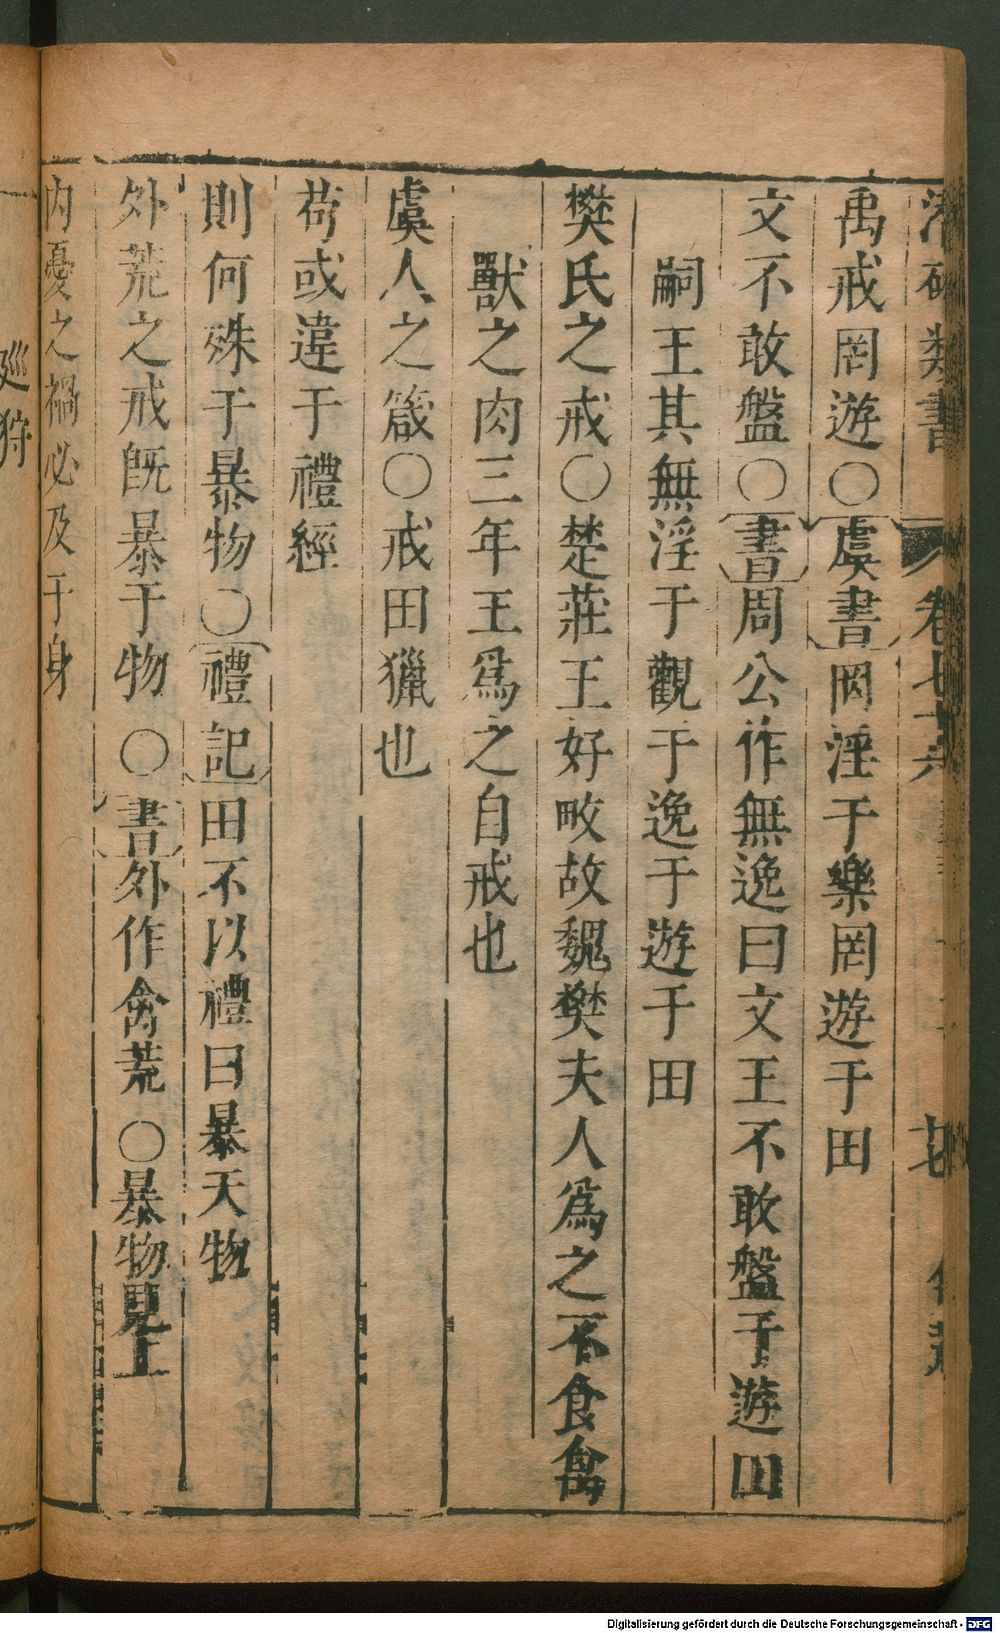 類書 卷七十六
禹戒罔遊○虞書罔淫于樂罔遊于田
文不敢盤○書周公作無逸曰文王不敢盤于遊田
嗣王其無淫于觀于逸于遊于田
樊氏之戒○楚莊王好畋故魏樊夫人為之不食禽
獸之肉三年王為之自戒也
虞人之箴○戒田獵也
苟或違于禮經
則何殊于暴物○禮記田不以禮曰暴天物
外荒之戒既暴于物○書外作禽荒○暴物見上
內憂之禍必及于身
廵狩
Digitalisierung gefördert durch die Deutsche Forschungsgemeinschaft - DFG